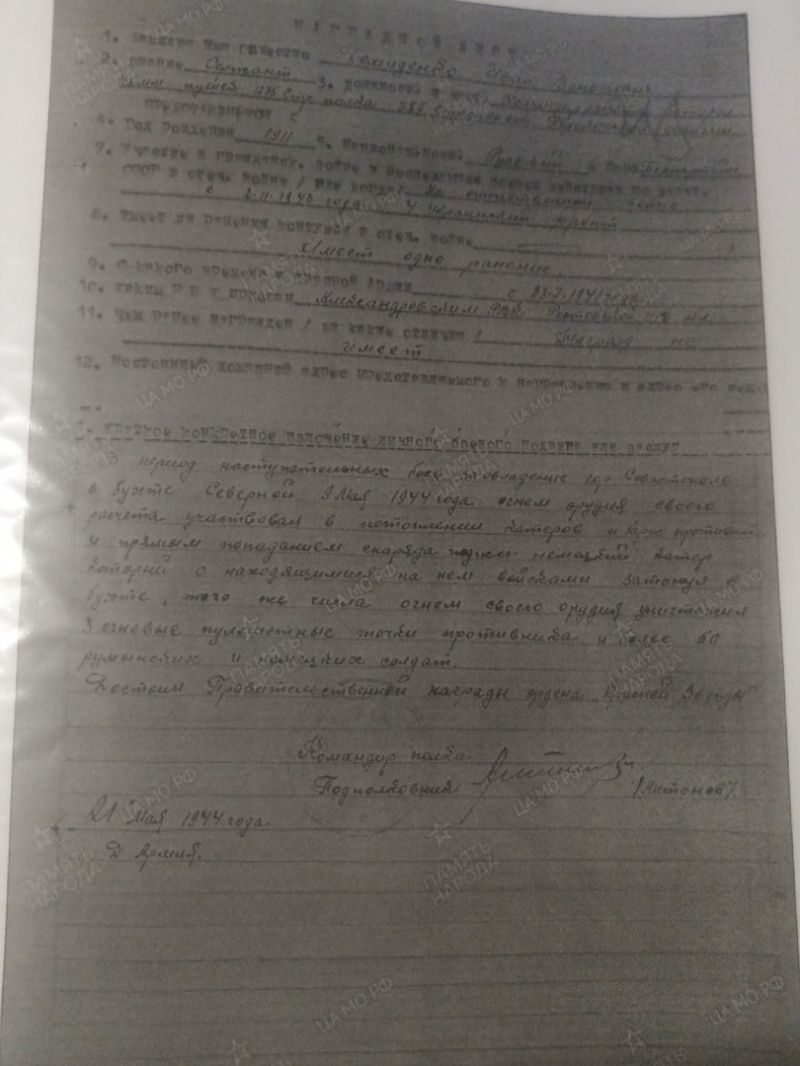 НАГРАДНОЙ ЛИСТ
1. Фамилия Имя Отчество Иван
2. Звание Сержант 3. Должность и часть Командир расчета батареи
45мм пушек 1175 Стр. полка 387 стрелковой дивизии
Представляется к
4. Год рождения 1911 5. Национальность Русский 6. Парт.
7. Участие в гражданск. войне и последующих боевых действиях по защите
СССР и отеч. войне / где когда / На отечественной войне
с 2.11.1943 года 4 Украинский фронт
8. Имеет ли ранения контузии в отеч. войне
Имеет одно ранение
9. С какого времени в Красной Армии с 23.7.1941 года
10. Каким РВК призван Александровским РВК
11. Чем ранее награжден / за какие отличия / Наград не
имеет
12. Постоянный домашний адрес представляемого к награждению и адрес его семьи
1. Краткое конкретное изложение личного боевого подвига или заслуг
В период наступательных боев за овладение гор Севастополь
в бухте Северной 9 Мая 1944 года огнем орудия своего
расчета участвовал в потоплении катеров и барж противника
и прямым попаданием снаряда поджег немецкий катер
который с находящимися на нем войсками затонул в
бухте, того же числа огнем своего орудия уничтожил
3 огневые пулеметные точки противника и более 60
румынских и немецких солдат.
Достоин Правительственной награды ордена „Красной Звезды"
Командир полка
Подполковник /Антонов/
21 Мая 1944 года
Д Армия.
ПАМЯТЬ НАРОДА
ЦА МО РФ